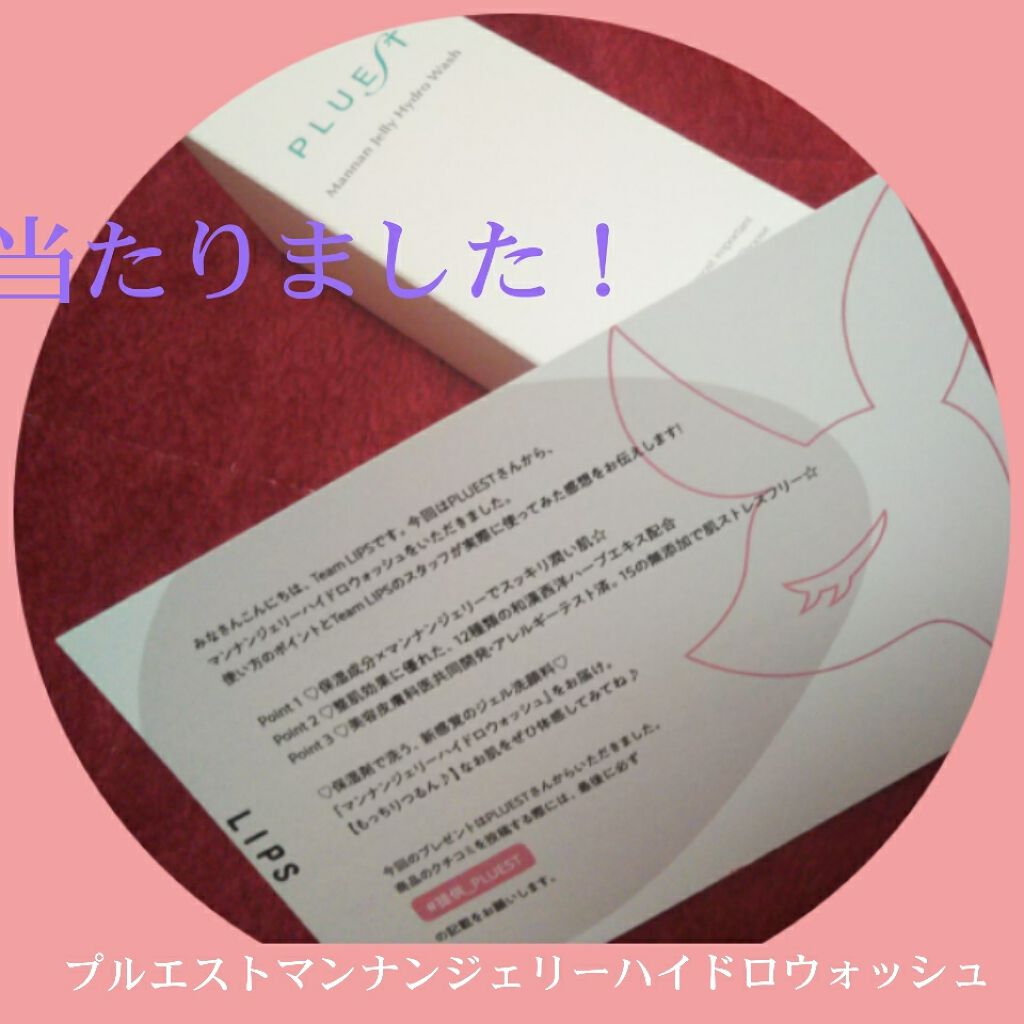 PLUEST
Mannan Jelly Hydro Wash
当たりました！
みなさんこんにちは、Team LIPSです。今回はPLUESTさんから、
マンナンジェリーハイドロウォッシュをいただきました。
使い方のポイントとTeam LIPSのスタッフが実際に使ってみた感想をお伝えします!
Point 1 ♡保湿成分×マンナンジェリーでスッキリ潤い肌☆
Point 2 ♡整肌効果に優れた、12種類の和漢西洋ハーブエキス配合
Point 3 ♡美容皮膚科医共同開発・アレルギーテスト済。15の無添加で肌ストレスフリー☆
♡保湿剤で洗う、新感覚のジェル洗顔料♡
「マンナンジェリーハイドロウォッシュ」をお届け。
【もっちりつるん♪】なお肌をぜひ体感してみてね♪
今回のプレゼントはPLUESTさんからいただきました。
商品のクチコミを投稿する際には、最後に必ず
#提供_PLUEST
の記載をお願いします。
LIPS
プルエストマンナンジェリーハイドロウォッシュ